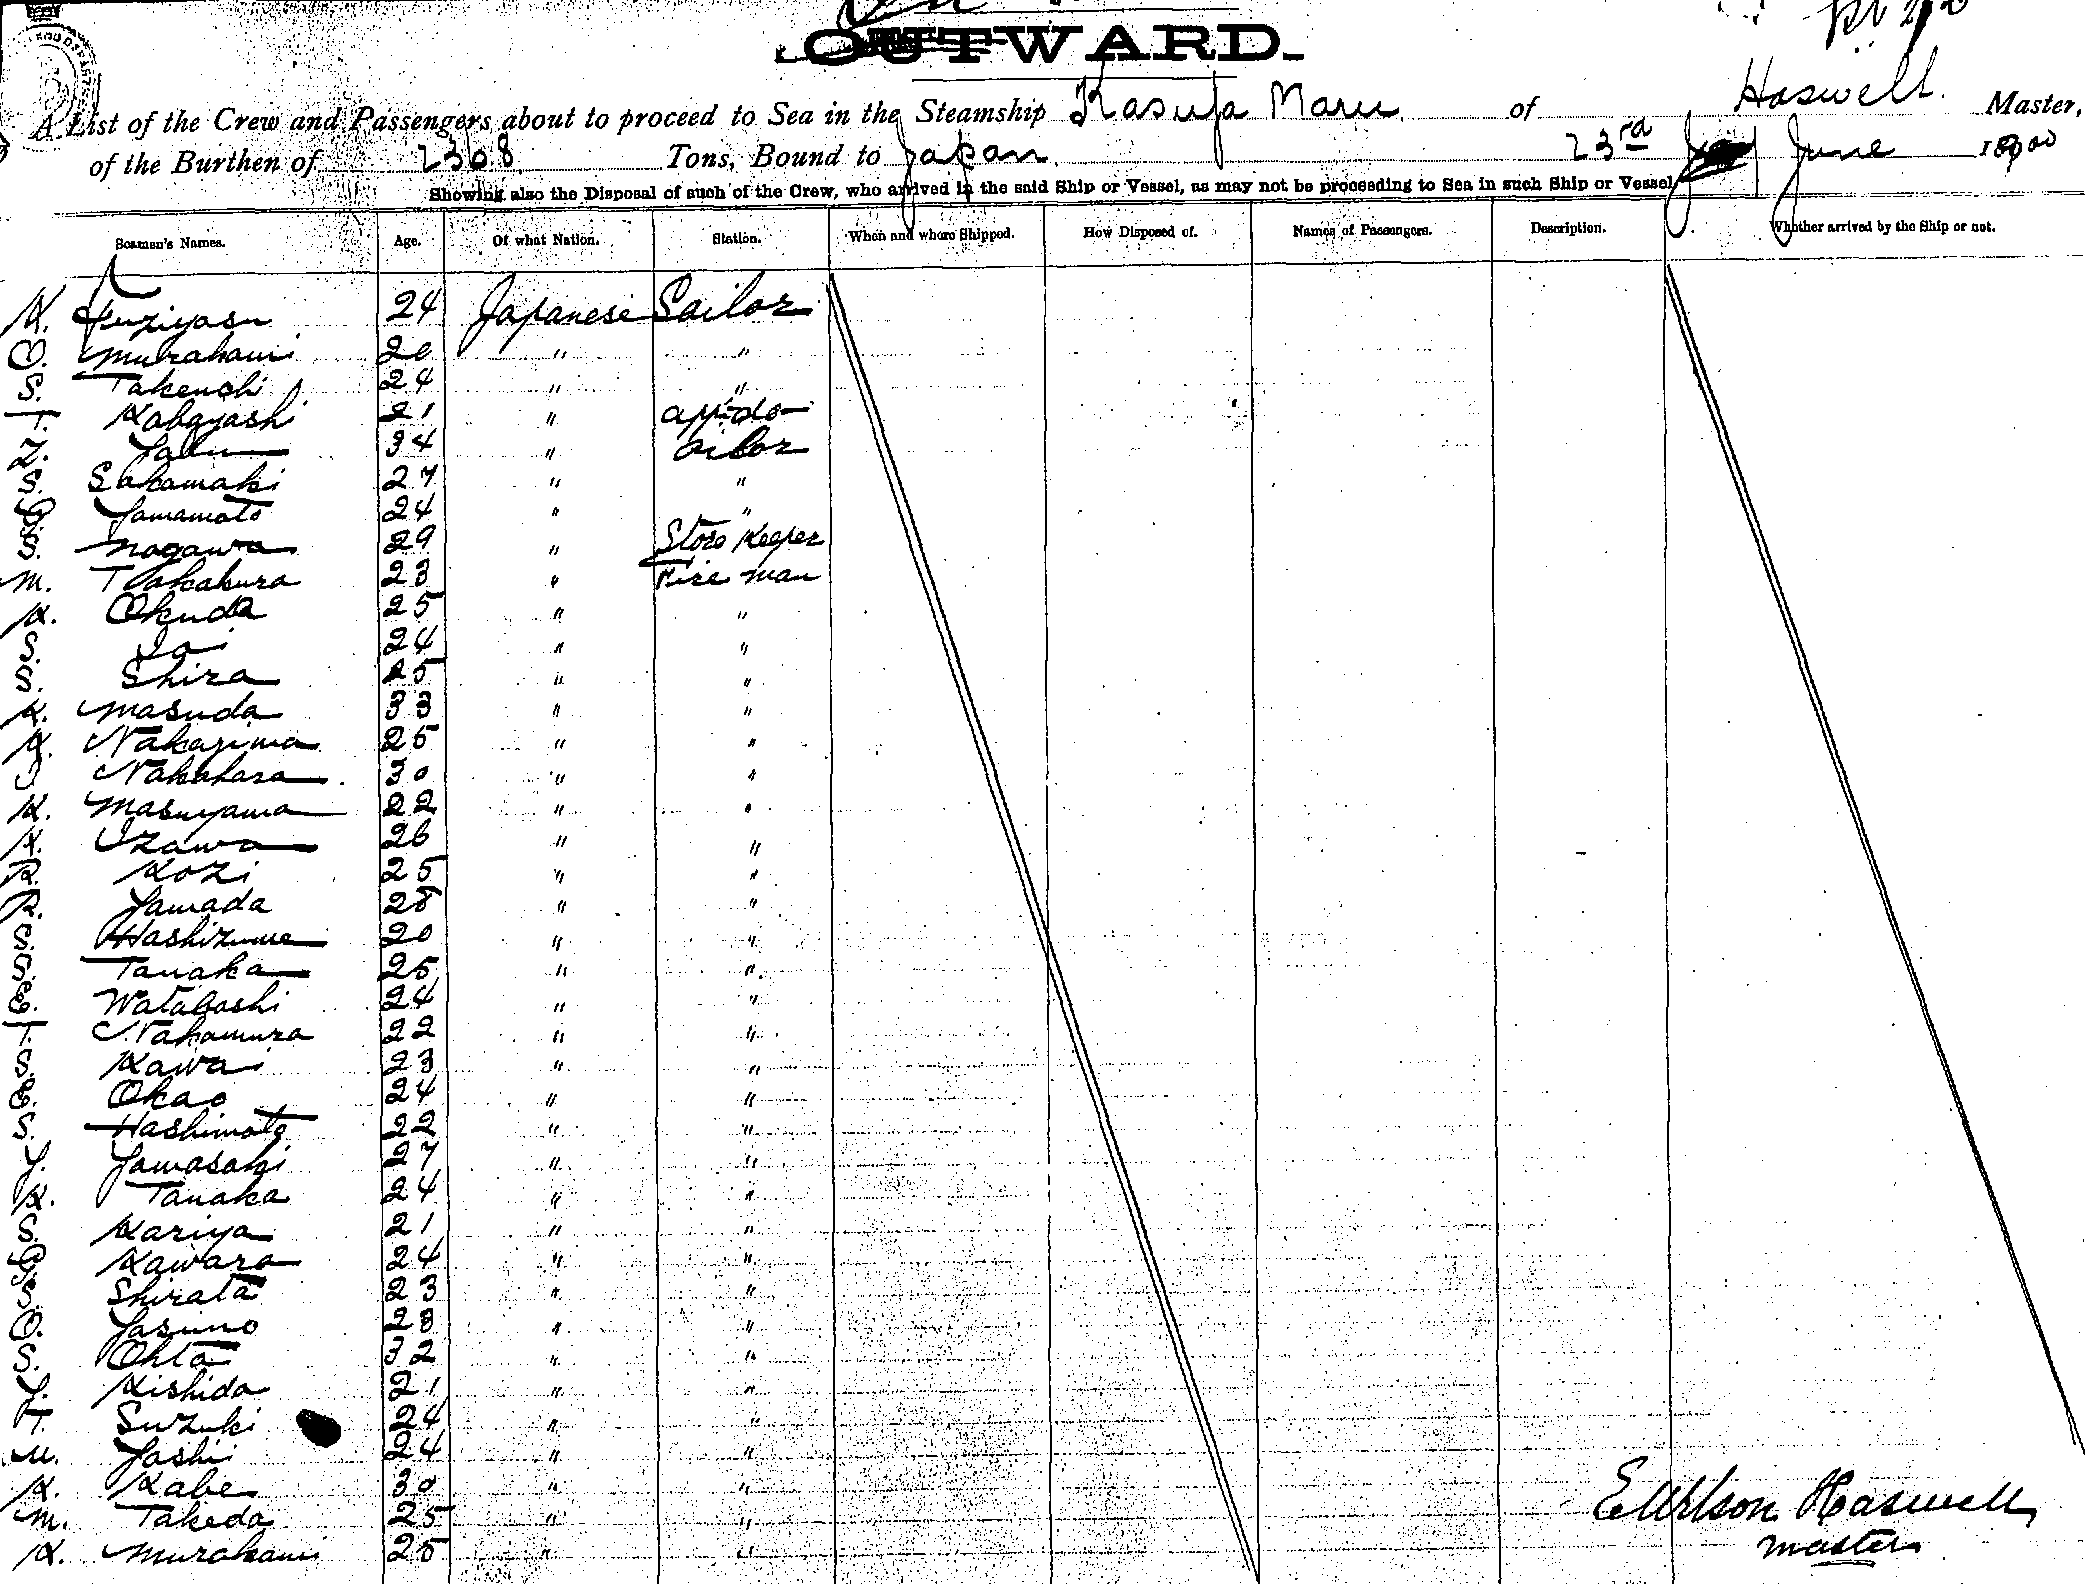 OUTWARD.
A List of the Crew and Passengers about to proceed to Sea in the Steamship Kasuga Maru. of Haswell. Master,
of the Burthen of 2368 Tons, Bound to Japan. 23rd June 1900
Showing also the Disposal of such of the Crew, who arrived in the said Ship or Vessel, as may not be proceeding to Sea in such Ship or Vessel
Seamen's Names. Age. Of what Nation. Station. When and where Shipped. How Disposed of. Names of Passengers. Description. Whether arrived by the Ship or not.
K. Fuziyasu 24 Japanese Sailor
O. Murakami 20 " "
S. Takeuchi 24 " "
T. Kobayashi 21 " app. do
Z. 34 " ailor
S. Sakamaki 27 " "
Yamamoto 24 " "
S. Nogawa 29 " Store Keeper
M. Takakura 23 " Fire man
K. Okuda 25 " "
S. 24 " "
S. Shira 25 " "
K. Masuda 33 " "
K. Nakazima 25 " "
Nakahara 30 " "
K. Masuyama 22 " "
K. Izawa 26 " "
R. Kozi 25 " "
R. Yamada 28 " "
S. Hashizume 20 " "
S. Tanaka 25 " "
E. Watabashi 24 " "
T. Nakamura 22 " "
S. Kawai 23 " "
E. Okao 24 " "
S. Hashimoto 22 " "
Y. Yamasaki 27 " "
K. Tanaka 24 " "
S. Kariya 21 " "
Kawara 24 " "
S. Shirata 23 " "
O. Yasuno 28 " "
S. Ohta 32 " "
Y. Kishida 21 " "
T. Suzuki 24 " "
U. Yoshii 24 " "
K. Kabe 30 " "
M. Takeda 25 " "
K. Murakami 25 " "
E Wilson Haswell
master